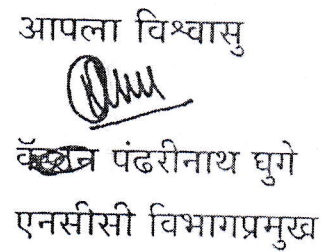 आपला विश्वासु
पंढरीनाथ घुगे
एनसीसी विभागप्रमुख